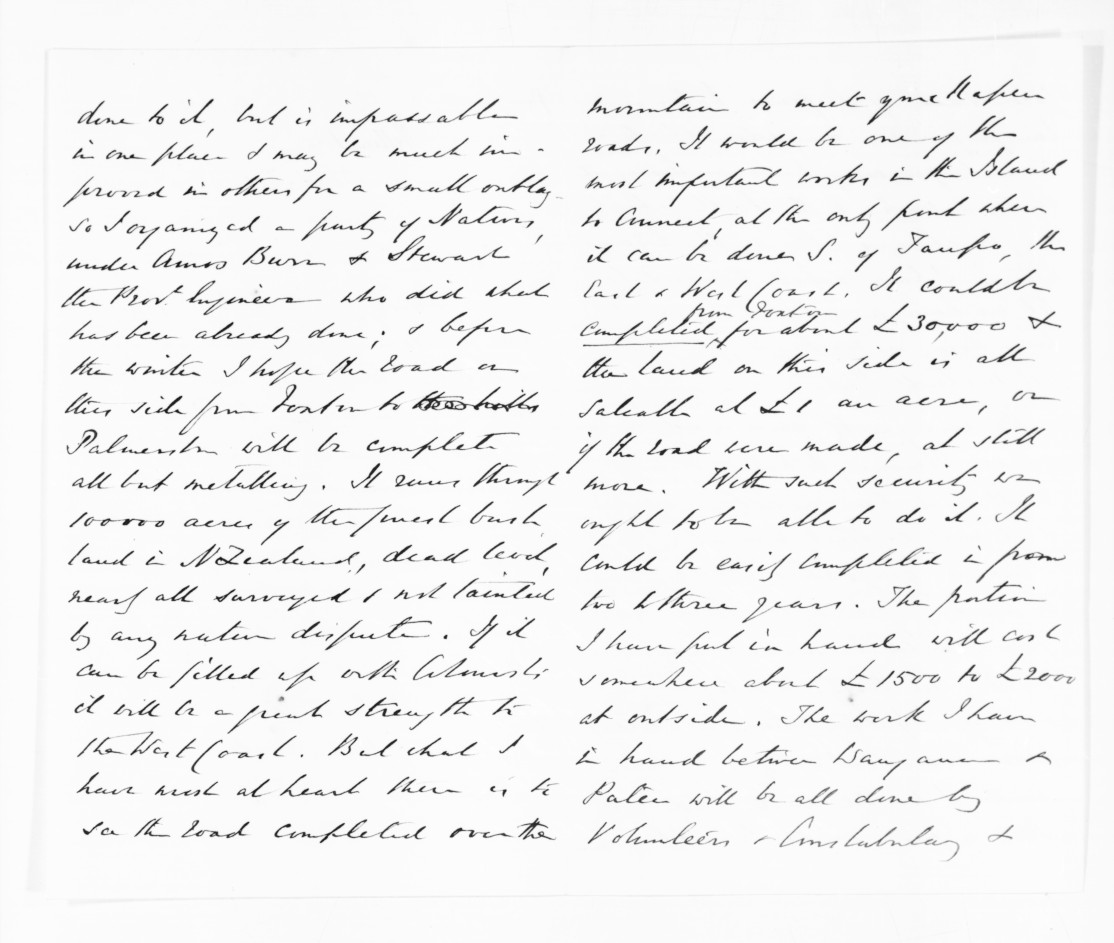 done to it, but is impassable
in one place & may be much im-
proved in others for a small outlay
so I organized a party of Natives,
under Amos Burr & Stewart
the Prov.l Engineer who did what
has been already done; & before
the winter I hope the road on
this side from Foxton to
Palmerston will be complete
all but metalling. It runs through
100000 acres of the finest bush
land in NZealand, dead level,
nearly all surveyed & not tainted
by any native dispute. If it
can be filled up with Colonists
it will be a great strength to
the West Coast. But what I
have most at heart there is to
see the road completed over the
mountain to meet your Napier
roads. It would be one of the
most important works in the Island
to connect, at the only point where
it can be done S. of Taupo, the
East & West Coast. It could be
from Foxton
completed, for about £30,000 &
the land on this side is all
saleable at £1 an acre, or
if the road were made, at still
more. With such security we
ought to be able to do it. It
could be easily completed in from
two to three years. The portion
I have put in hand will cost
somewhere about £1500 to £2000
at outside. The work I have
in hand between Wanganui &
Patea will be all done by
Volunteers & Constabulary &